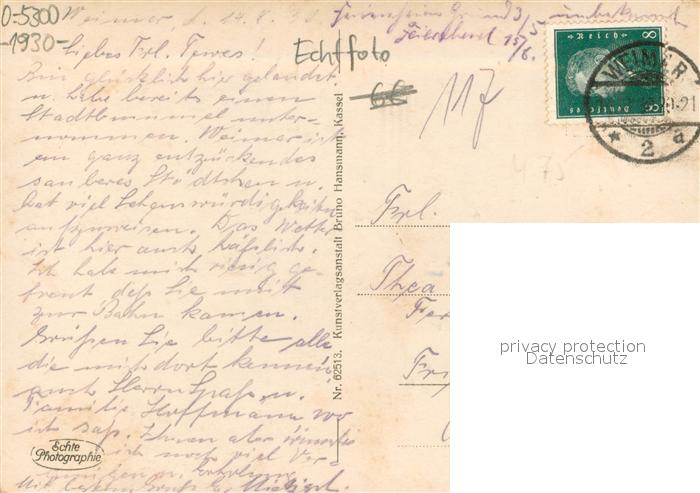 O-5300
-1930-
Echtfoto
66
117
475
Weimar, d. 14.
Liebes Frl. Tewes!
Bin glücklich hier gelandet
u. habe bereits einen
Stadtbummel unter-
nommen. Weimar ist
ein ganz entzückendes
sauberes Städtchen u.
hat viel Sehenswürdigkeiten
aufzuweisen. Das Wetter
ist hier auch häßlich.
Ich hab mich riesig ge-
freut daß Sie mit
zur Bahn kamen.
Grüßen Sie bitte alle
die mich dort kennen
auch Herrn u.
Familie Hoffmann wo
ich saß. Ihnen aber wünsche
ich noch viel Ver-
gnügen u. Erholung
Mit besten Gruß
Echte
Photographie
Nr. 62513. Kunstverlagsanstalt Bruno Hansmann, Kassel
8
Deutsches
Reich
WEIMAR
* 2 a
Frl.
Thea
privacy protection
Datenschutz